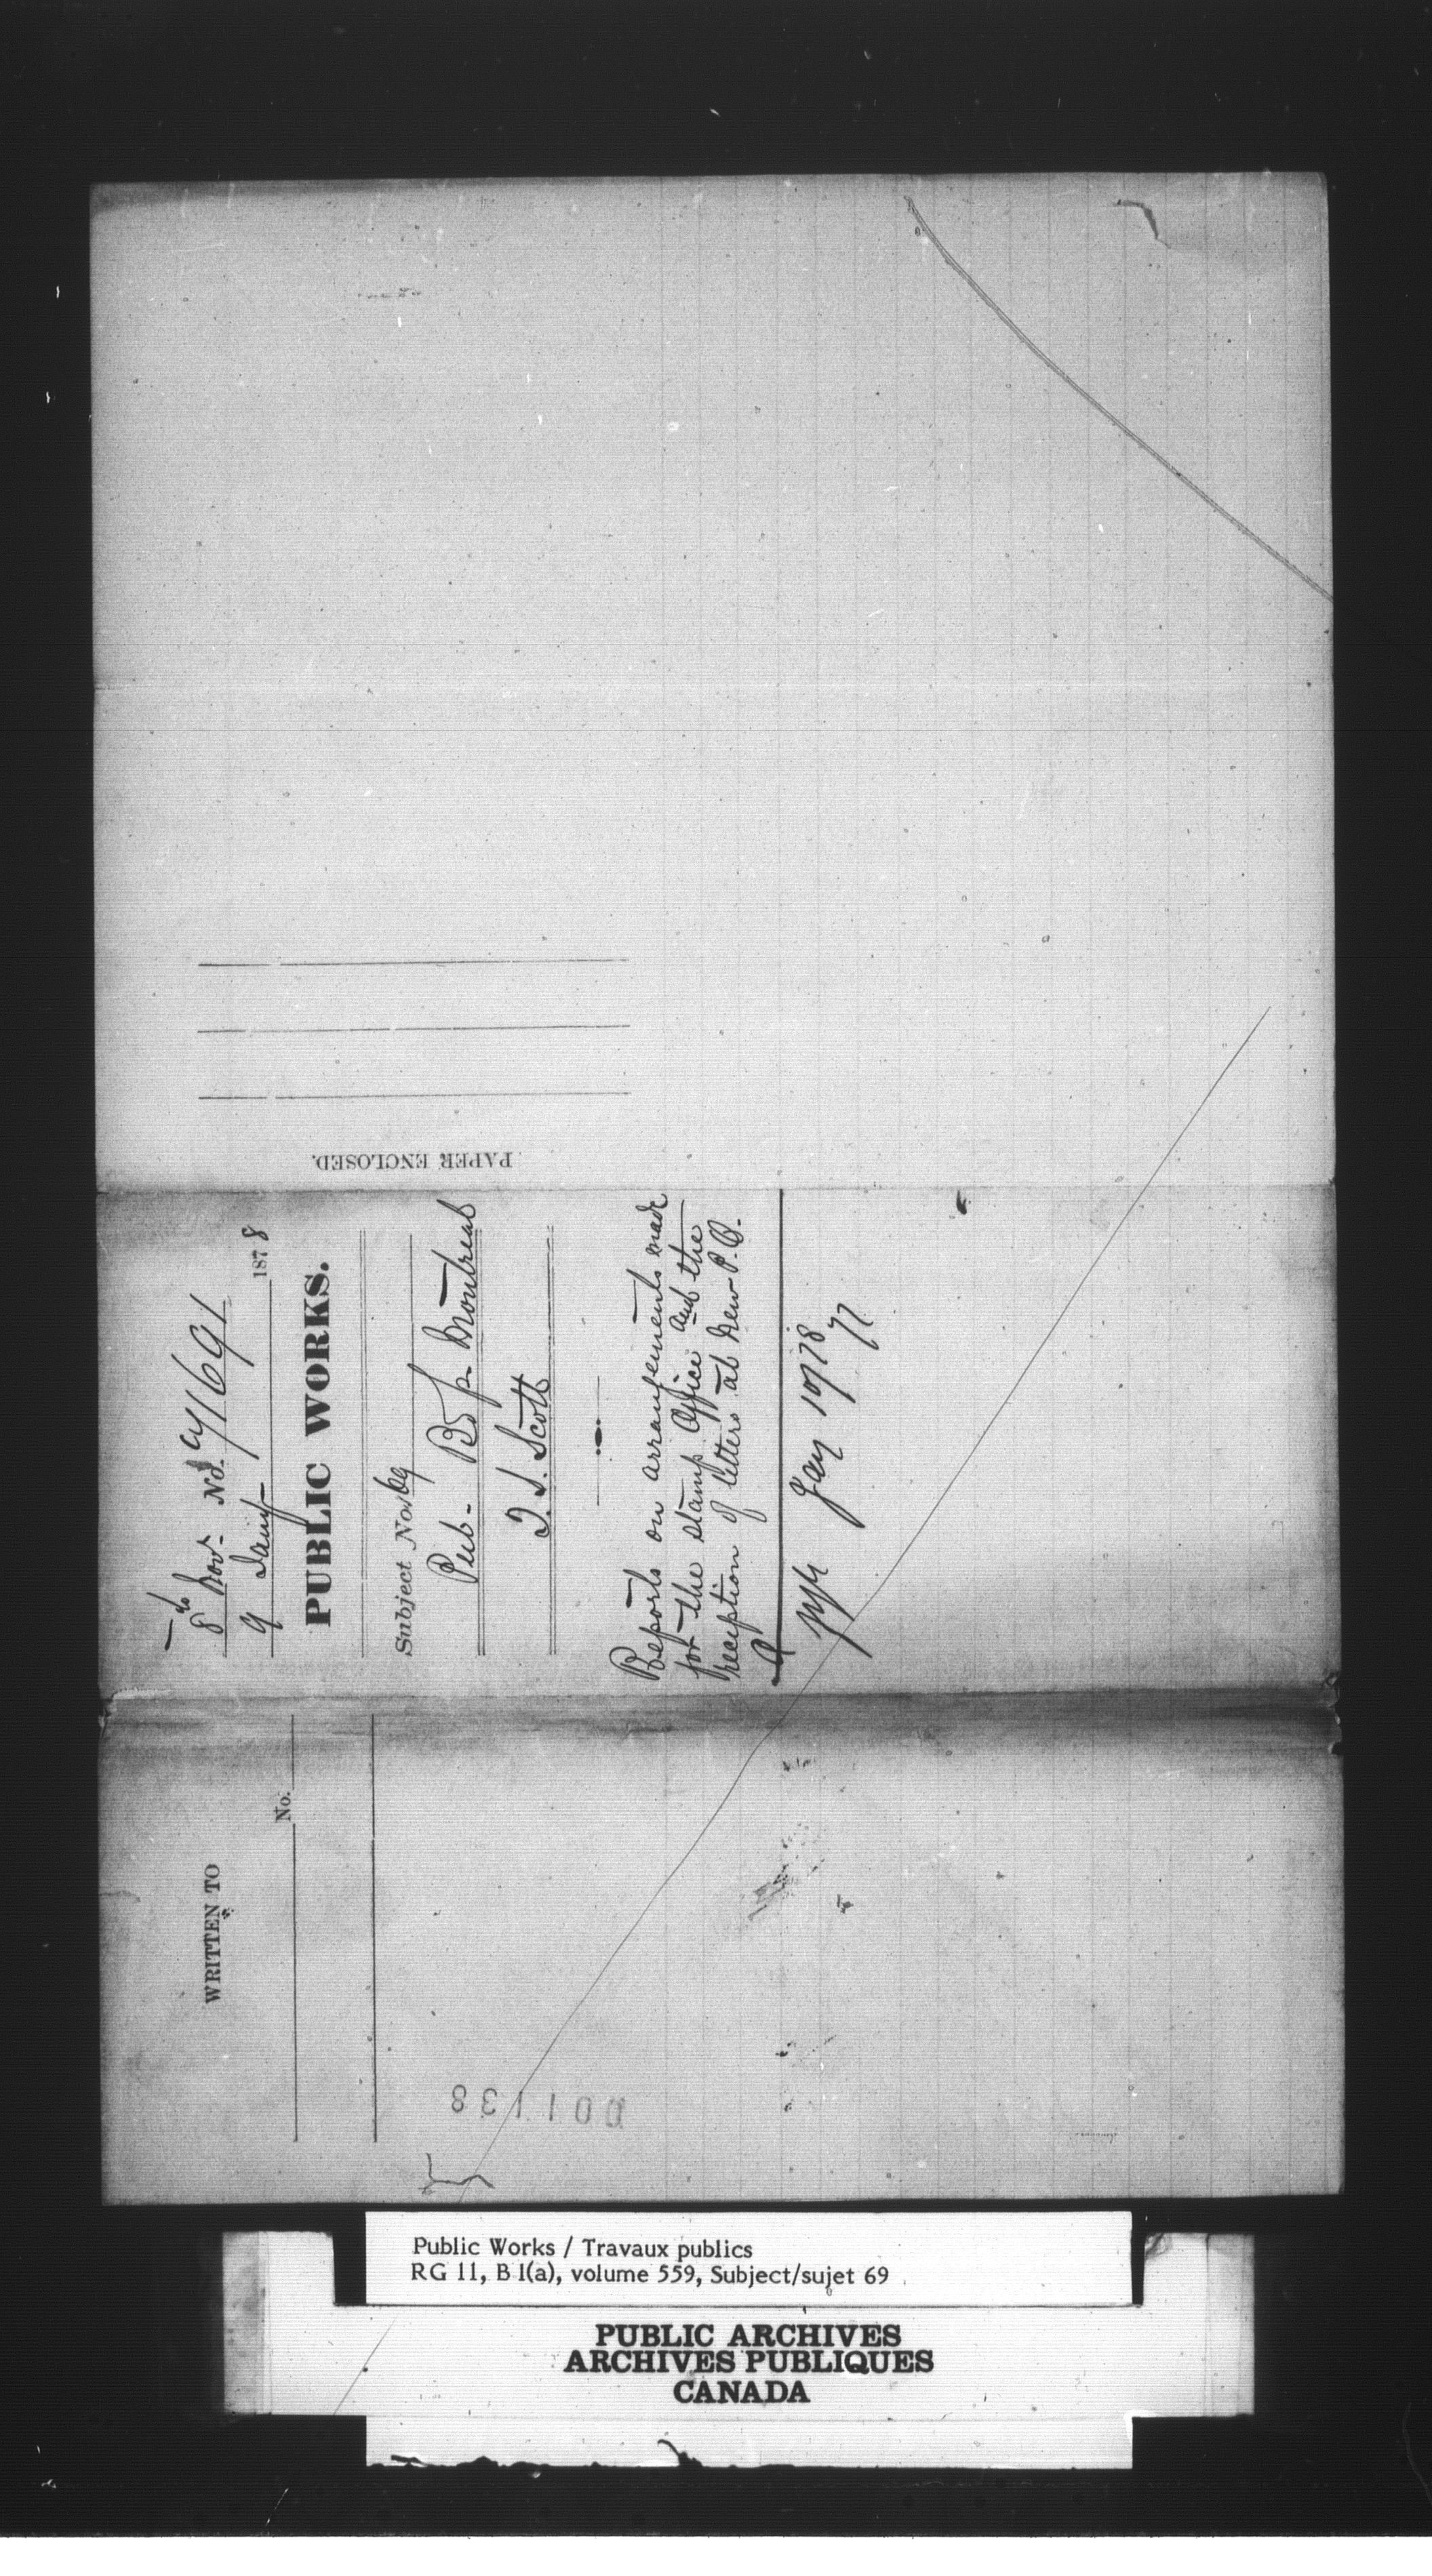 8 Nov- No. 71691
9 Jany- 1878
PUBLIC WORKS.
Subject No. 69
Pub- Bdgs- Montreal
T. S. Scott
Reports on arrangements made
for the Stamp Office and the
reception of letters at New P.O.
Jany 10/78
77
PAPER ENCLOSED.
WRITTEN TO
No.
001138
Public Works / Travaux publics
RG 11, B 1(a), volume 559, Subject/sujet 69
PUBLIC ARCHIVES
ARCHIVES PUBLIQUES
CANADA